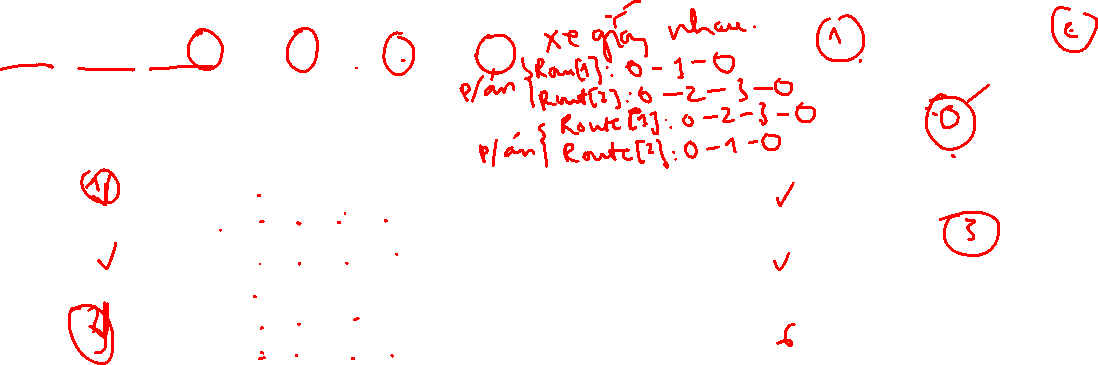 xe giống nhau.
p/án { Rou[1]: 0-1-0
Rout[2]: 0-2-3-0
p/án { Route[1]: 0-2-3-0
Route[2]: 0-1-0
1
2
0
3
1
3
6